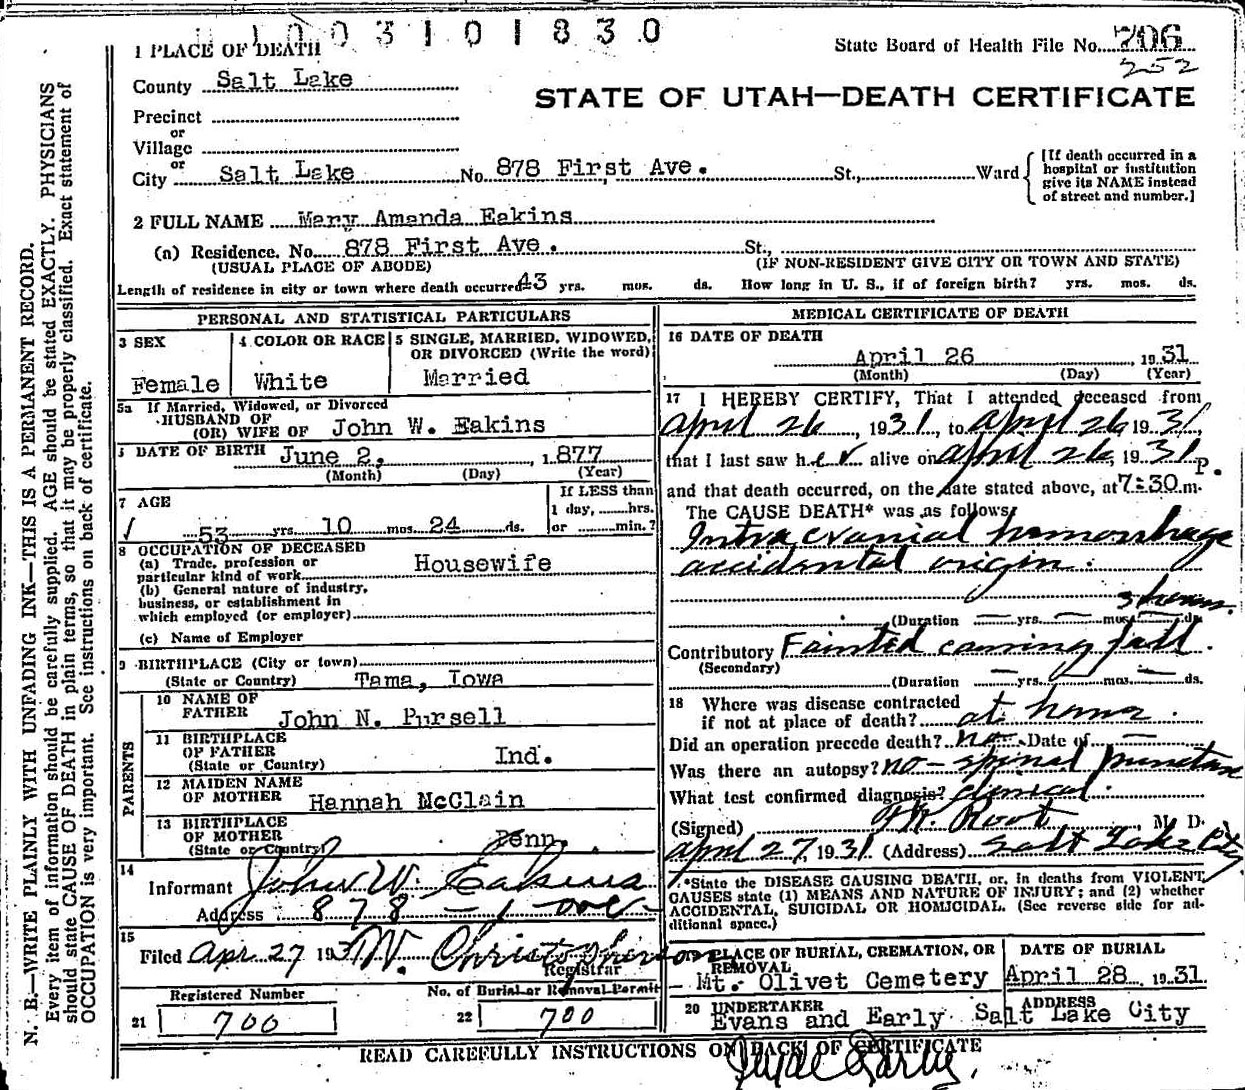 1003101830
1 PLACE OF DEATH
State Board of Health File No. 706
252
County Salt Lake
STATE OF UTAH—DEATH CERTIFICATE
Precinct
or
Village
or
City Salt Lake No. 878 First Ave. St., Ward
[If death occurred in a
hospital or institution
give its NAME instead
of street and number.]
2 FULL NAME Mary Amanda Eakins
(a) Residence. No. 878 First Ave. St.,
(USUAL PLACE OF ABODE) (IF NON-RESIDENT GIVE CITY OR TOWN AND STATE)
Length of residence in city or town where death occurred 43 yrs. mos. ds. How long in U. S., if of foreign birth? yrs. mos. ds.
N. B.—WRITE PLAINLY WITH UNFADING INK—THIS IS A PERMANENT RECORD.
Every item of information should be carefully supplied. AGE should be stated EXACTLY. PHYSICIANS
should state CAUSE OF DEATH in plain terms, so that it may be properly classified. Exact statement of
OCCUPATION is very important. See instructions on back of certificate.
PERSONAL AND STATISTICAL PARTICULARS
3 SEX
Female
4 COLOR OR RACE
White
5 SINGLE, MARRIED, WIDOWED,
OR DIVORCED (Write the word)
Married
5a If Married, Widowed, or Divorced
HUSBAND OF
(OR) WIFE OF John W. Eakins
DATE OF BIRTH June 2, 1877
(Month) (Day) (Year)
7 AGE
53 yrs. 10 mos. 24 ds.
If LESS than
1 day, hrs.
or min.?
8 OCCUPATION OF DECEASED
(a) Trade, profession or
particular kind of work Housewife
(b) General nature of industry,
business, or establishment in
which employed (or employer)
(c) Name of Employer
9 BIRTHPLACE (City or town)
(State or Country) Tama, Iowa
PARENTS
10 NAME OF
FATHER John N. Pursell
11 BIRTHPLACE
OF FATHER
(State or Country) Ind.
12 MAIDEN NAME
OF MOTHER Hannah McClain
13 BIRTHPLACE
OF MOTHER
(State or Country) Penn.
14
Informant John W. Eakins
Address 878 - 1 ave
15
Filed Apr. 27 1931 W. Christopherson
Registrar
Registered Number
21 700
No. of Burial or Removal Permit
22 700
MEDICAL CERTIFICATE OF DEATH
16 DATE OF DEATH
April 26, 1931
(Month) (Day) (Year)
17 I HEREBY CERTIFY, That I attended deceased from
April 26, 1931, to April 26 1931,
that I last saw her alive on April 26, 1931
and that death occurred, on the date stated above, at 7:30 P. m.
The CAUSE DEATH* was as follows:
Intra cranial hemorrhage
accidental origin.
3 hours.
(Duration yrs. mos. ds.
Contributory Fainted causing fall.
(Secondary)
(Duration yrs. mos. ds.
18 Where was disease contracted
if not at place of death? at home.
Did an operation precede death? no Date of
Was there an autopsy? no - spinal puncture
What test confirmed diagnosis? clinical.
(Signed) Root, M. D.
April 27, 1931 (Address) Salt Lake City
*State the DISEASE CAUSING DEATH, or, in deaths from VIOLENT
CAUSES state (1) MEANS AND NATURE OF INJURY; and (2) whether
ACCIDENTAL, SUICIDAL OR HOMICIDAL. (See reverse side for ad-
ditional space.)
PLACE OF BURIAL, CREMATION, OR
REMOVAL
Mt. Olivet Cemetery
DATE OF BURIAL
April 28, 1931
20 UNDERTAKER
Evans and Early
ADDRESS
Salt Lake City
READ CAREFULLY INSTRUCTIONS ON BACK OF CERTIFICATE